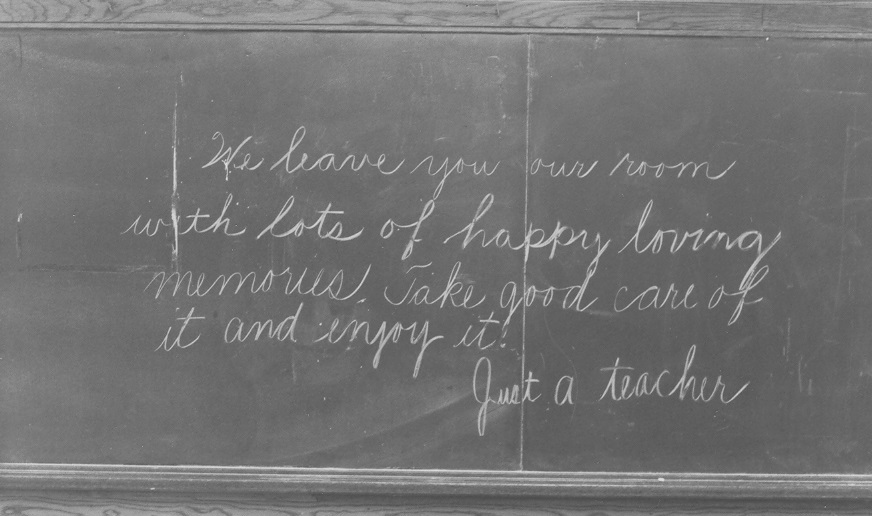 We leave you our room
with lots of happy loving
memories. Take good care of
it and enjoy it!
Just a teacher